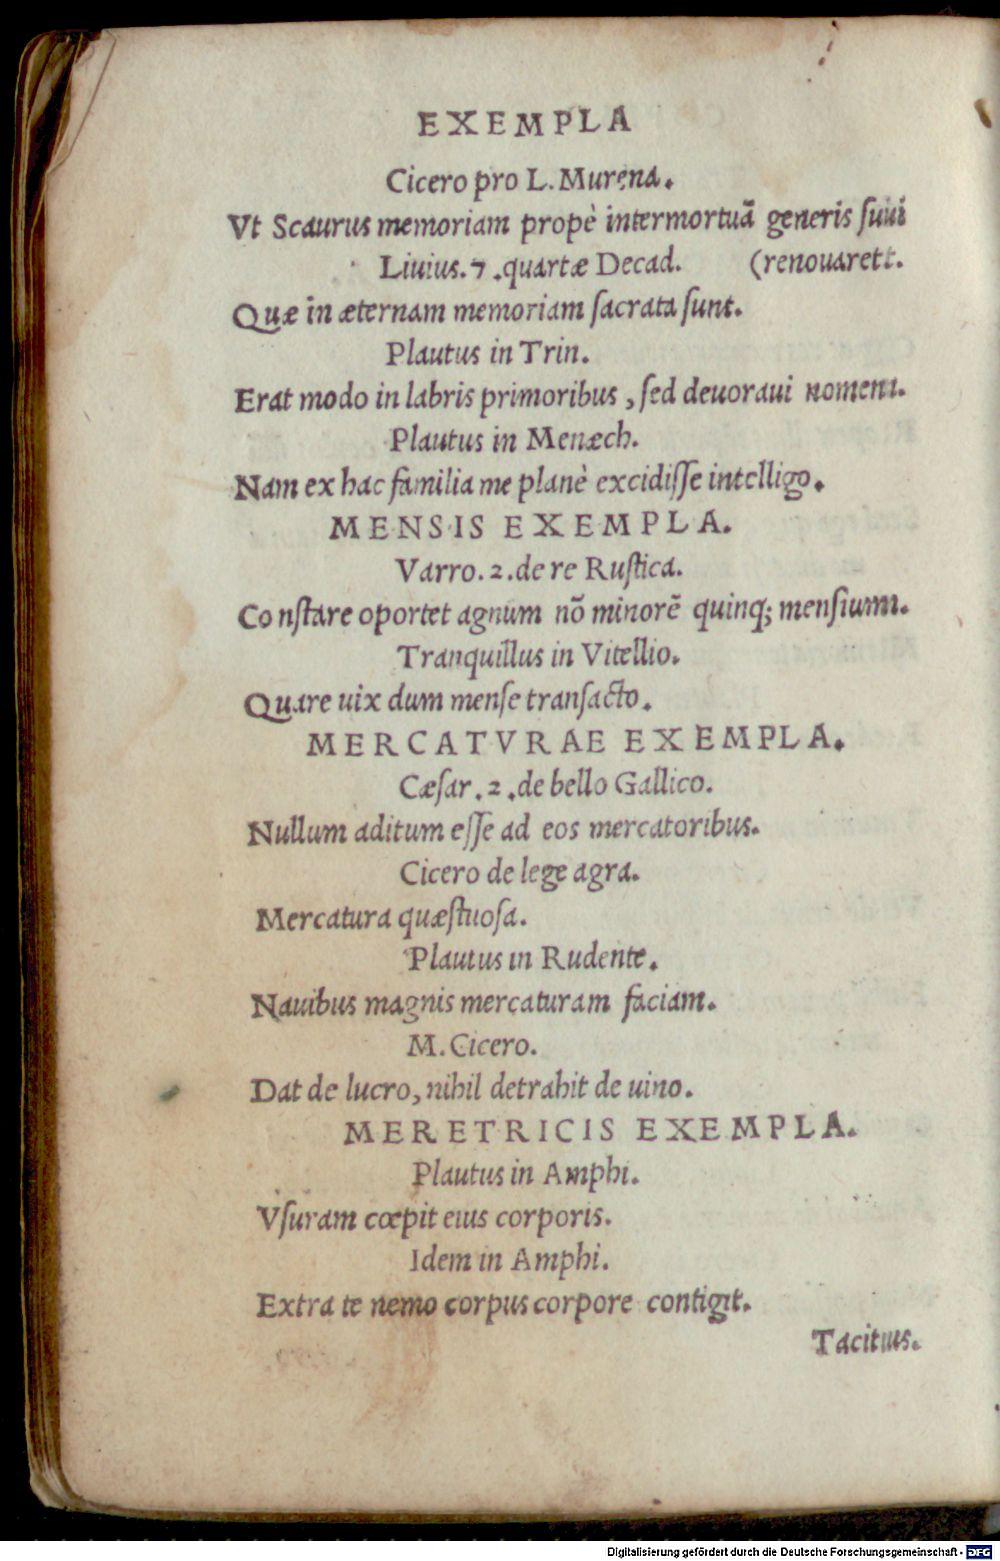 EXEMPLA
Cicero pro L. Murena.
Vt Scaurus memoriam propè intermortuā generis ſuui
Liuius. 7 .quartæ Decad. (renouarett.
Quæ in æternam memoriam ſacrata ſunt.
Plautus in Trin.
Erat modo in labris primoribus , ſed deuoraui nomem.
Plautus in Menæch.
Nam ex hac familia me planè excidiſſe intelligo.
MENSIS EXEMPLA.
Varro. 2 .de re Ruſtica.
Conſtare oportet agnum nō minorē quinq; menſiumm.
Tranquillus in Vitellio.
Quare uix dum menſe tranſacto.
MERCATVRAE EXEMPLA.
Cæſar. 2 .de bello Gallico.
Nullum aditum eſſe ad eos mercatoribus.
Cicero de lege agra.
Mercatura quæſtuoſa.
Plautus in Rudente.
Nauibus magnis mercaturam faciam.
M. Cicero.
Dat de lucro, nihil detrahit de uino.
MERETRICIS EXEMPLA.
Plautus in Amphi.
Vſuram cœpit eius corporis.
Idem in Amphi.
Extra te nemo corpus corpore contigit.
Tacitus.
Digitalisierung gefördert durch die Deutsche Forschungsgemeinschaft - DFG